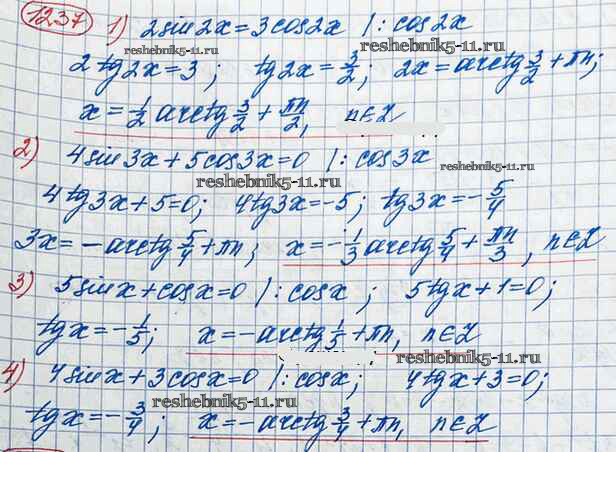 1237 1) 2sin2x=3cos2x |:cos2x
reshebnik5-11.ru
2tg2x=3; tg2x=3/2; 2x=arctg 3/2+πn;
x=1/2 arctg 3/2+πn/2, n∈Z
reshebnik5-11.ru
2) 4sin3x+5cos3x=0 |:cos3x
reshebnik5-11.ru
reshebnik5-11.ru
4tg3x+5=0; 4tg3x=-5; tg3x=-5/4
3x=-arctg 5/4+πn; x=-1/3 arctg 5/4+πn/3, n∈Z
reshebnik5-11.ru
3) 5sinx+cosx=0 |:cosx; 5tgx+1=0;
tgx=-1/5; x=-arctg 1/5+πn, n∈Z
reshebnik5-11.ru
reshebnik5-11.ru
4) 4sinx+3cosx=0 |:cosx; 4tgx+3=0;
reshebnik5-11.ru
tgx=-3/4; x=-arctg 3/4+πn, n∈Z